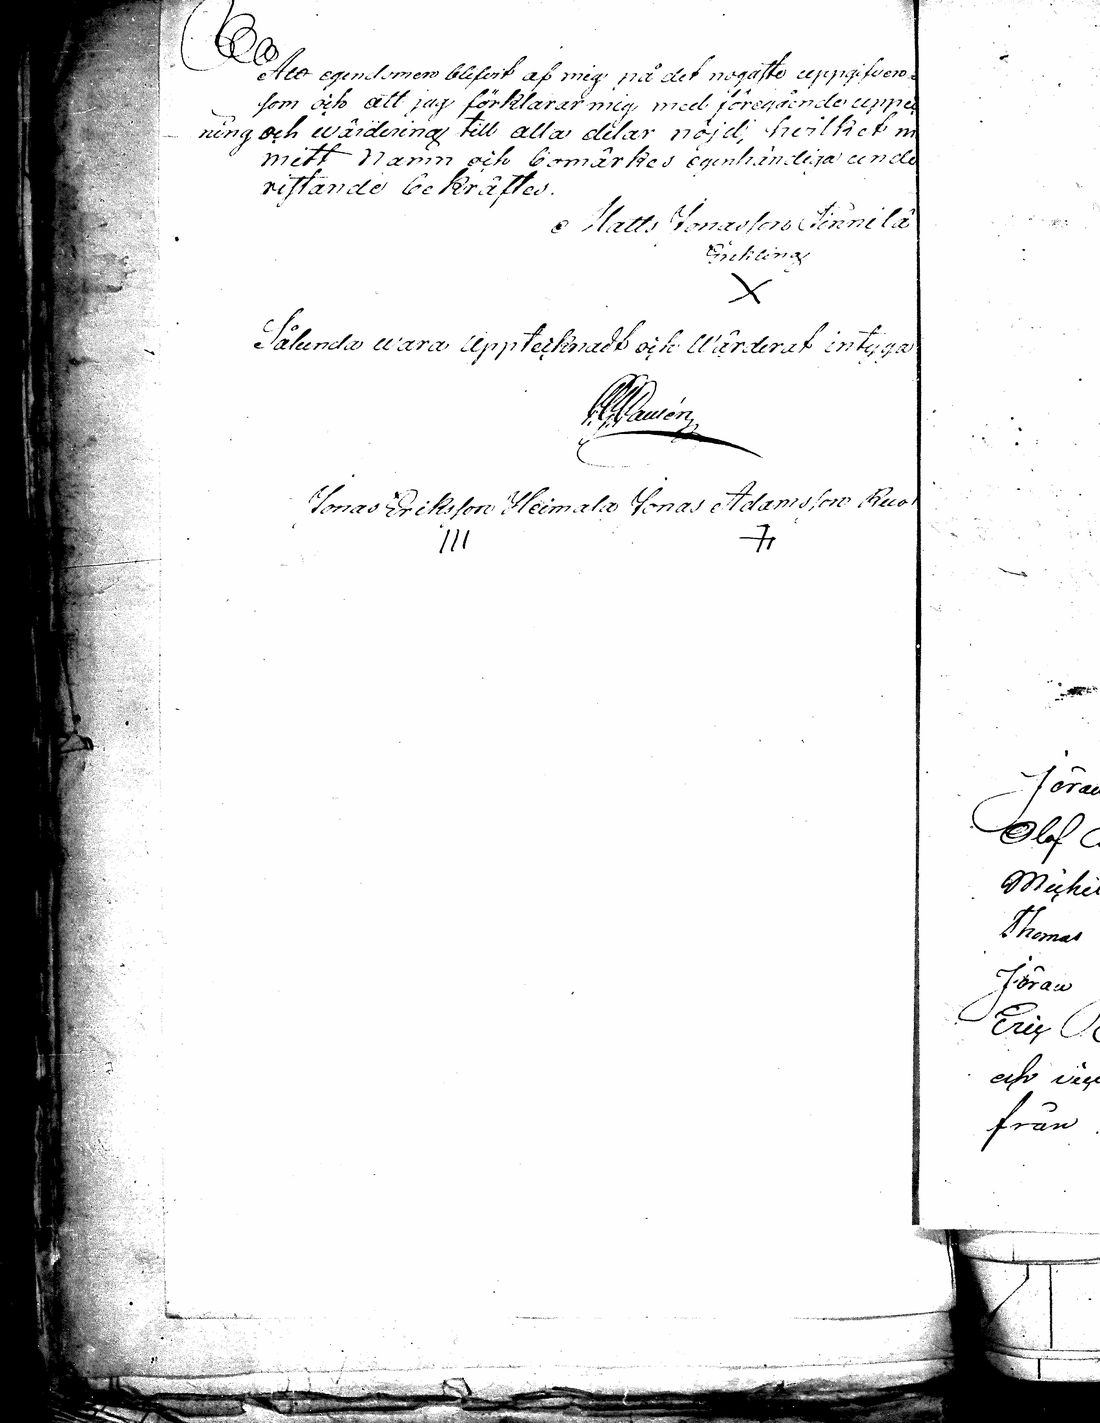 Att egendomen blifvit af mig på det nogaste uppgifven
som och att jag förklarar mig med föregående uppt
ning och wärdering till alla delar nöjd, hvilket m
mitt Namn och bomärkes egenhändiga unde
ristande bekräftes.
Matts Jonasson Finnilä
Enkling
X
Sålunda wara Upptecknadt och Wärderat intyga
Jonas Eriksson Heimala Jonas Adamsson
III
Jöran
Olof
Michel
Thomas
Jöran
Eric
och
från